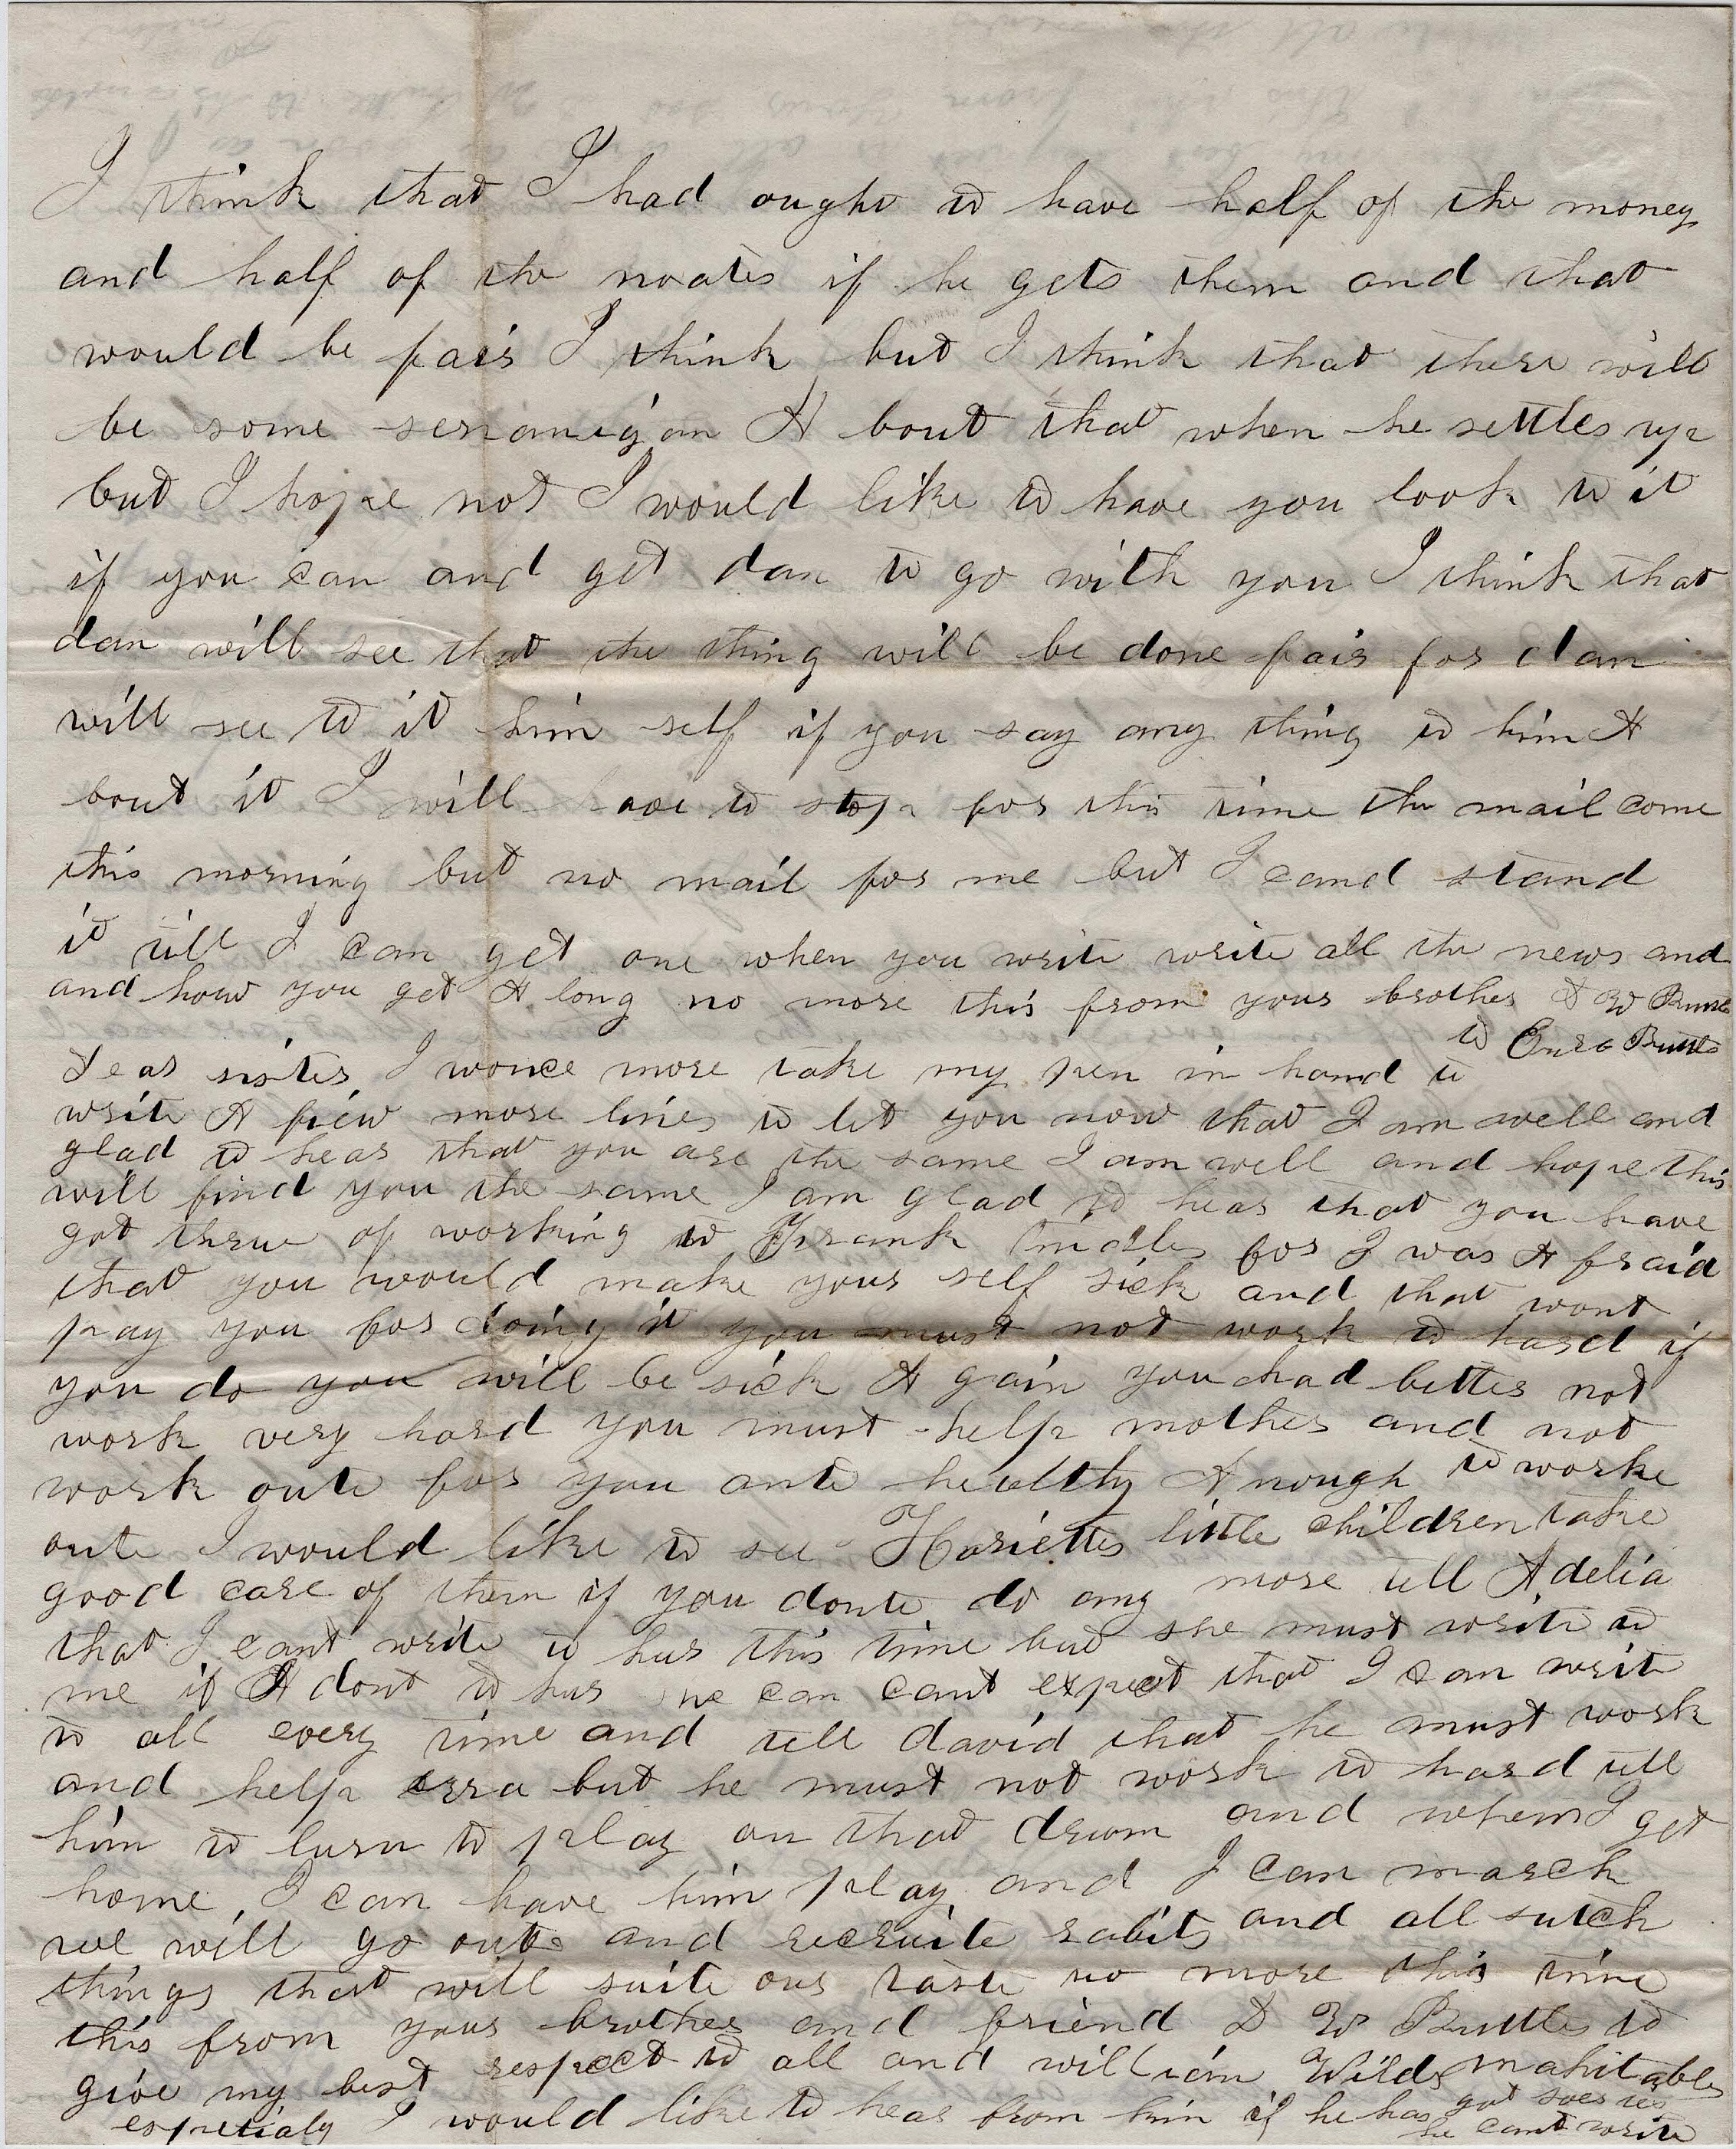 I think that I had ought to have half of the money
and half of the noates if he gets them and that
would be fair I think but I think that there will
be some senanigan A bout that when he settles up
but I hope not I would like to have you look to it
if you can and get dan to go with you I think that
dan will see that the thing will be done fair for dan
will see to it him self if you say any thing to him A
bout it I will have to stop for this time the mail come
this morning but no mail for me but I cand stand
it till I can get one when you write write all the news and
and how you get A long no more this from your brother D W Buttles
to Buttles
dear sister I wonce more take my pen in hand to
write A fiew more lines to let you now that I am well and
glad to hear that you are the same I am well and hope this
will find you the same I am glad to hear that you have
got threw of working to Frank for I was A fraid
that you would make your self sick and that wont
pay you for doing it you must not work to hard if
you do you will be sick A gain you had better not
work very hard you must help mother and not
work oute for you ante healthy A nough to worke
oute I would like to see Harietts little children take
good care of them if you donte do any more tell Adelia
that I cant write to hur this time but she must write to
me if A dont to hur she can cant expect that I can write
to all every time and tell david that he must work
and help ezra but he must not work to hard tell
him to lurn to play on that drum and when I get
home I can have him play and I can march
we will go oute and recruite rabits and all sutch
things that will suite our taste no more this time
this from your brother and friend D W Buttles to
give my best respect to all and william Wilds mahitables
espetialy I would like to hear from him if he has got soer
he cant write